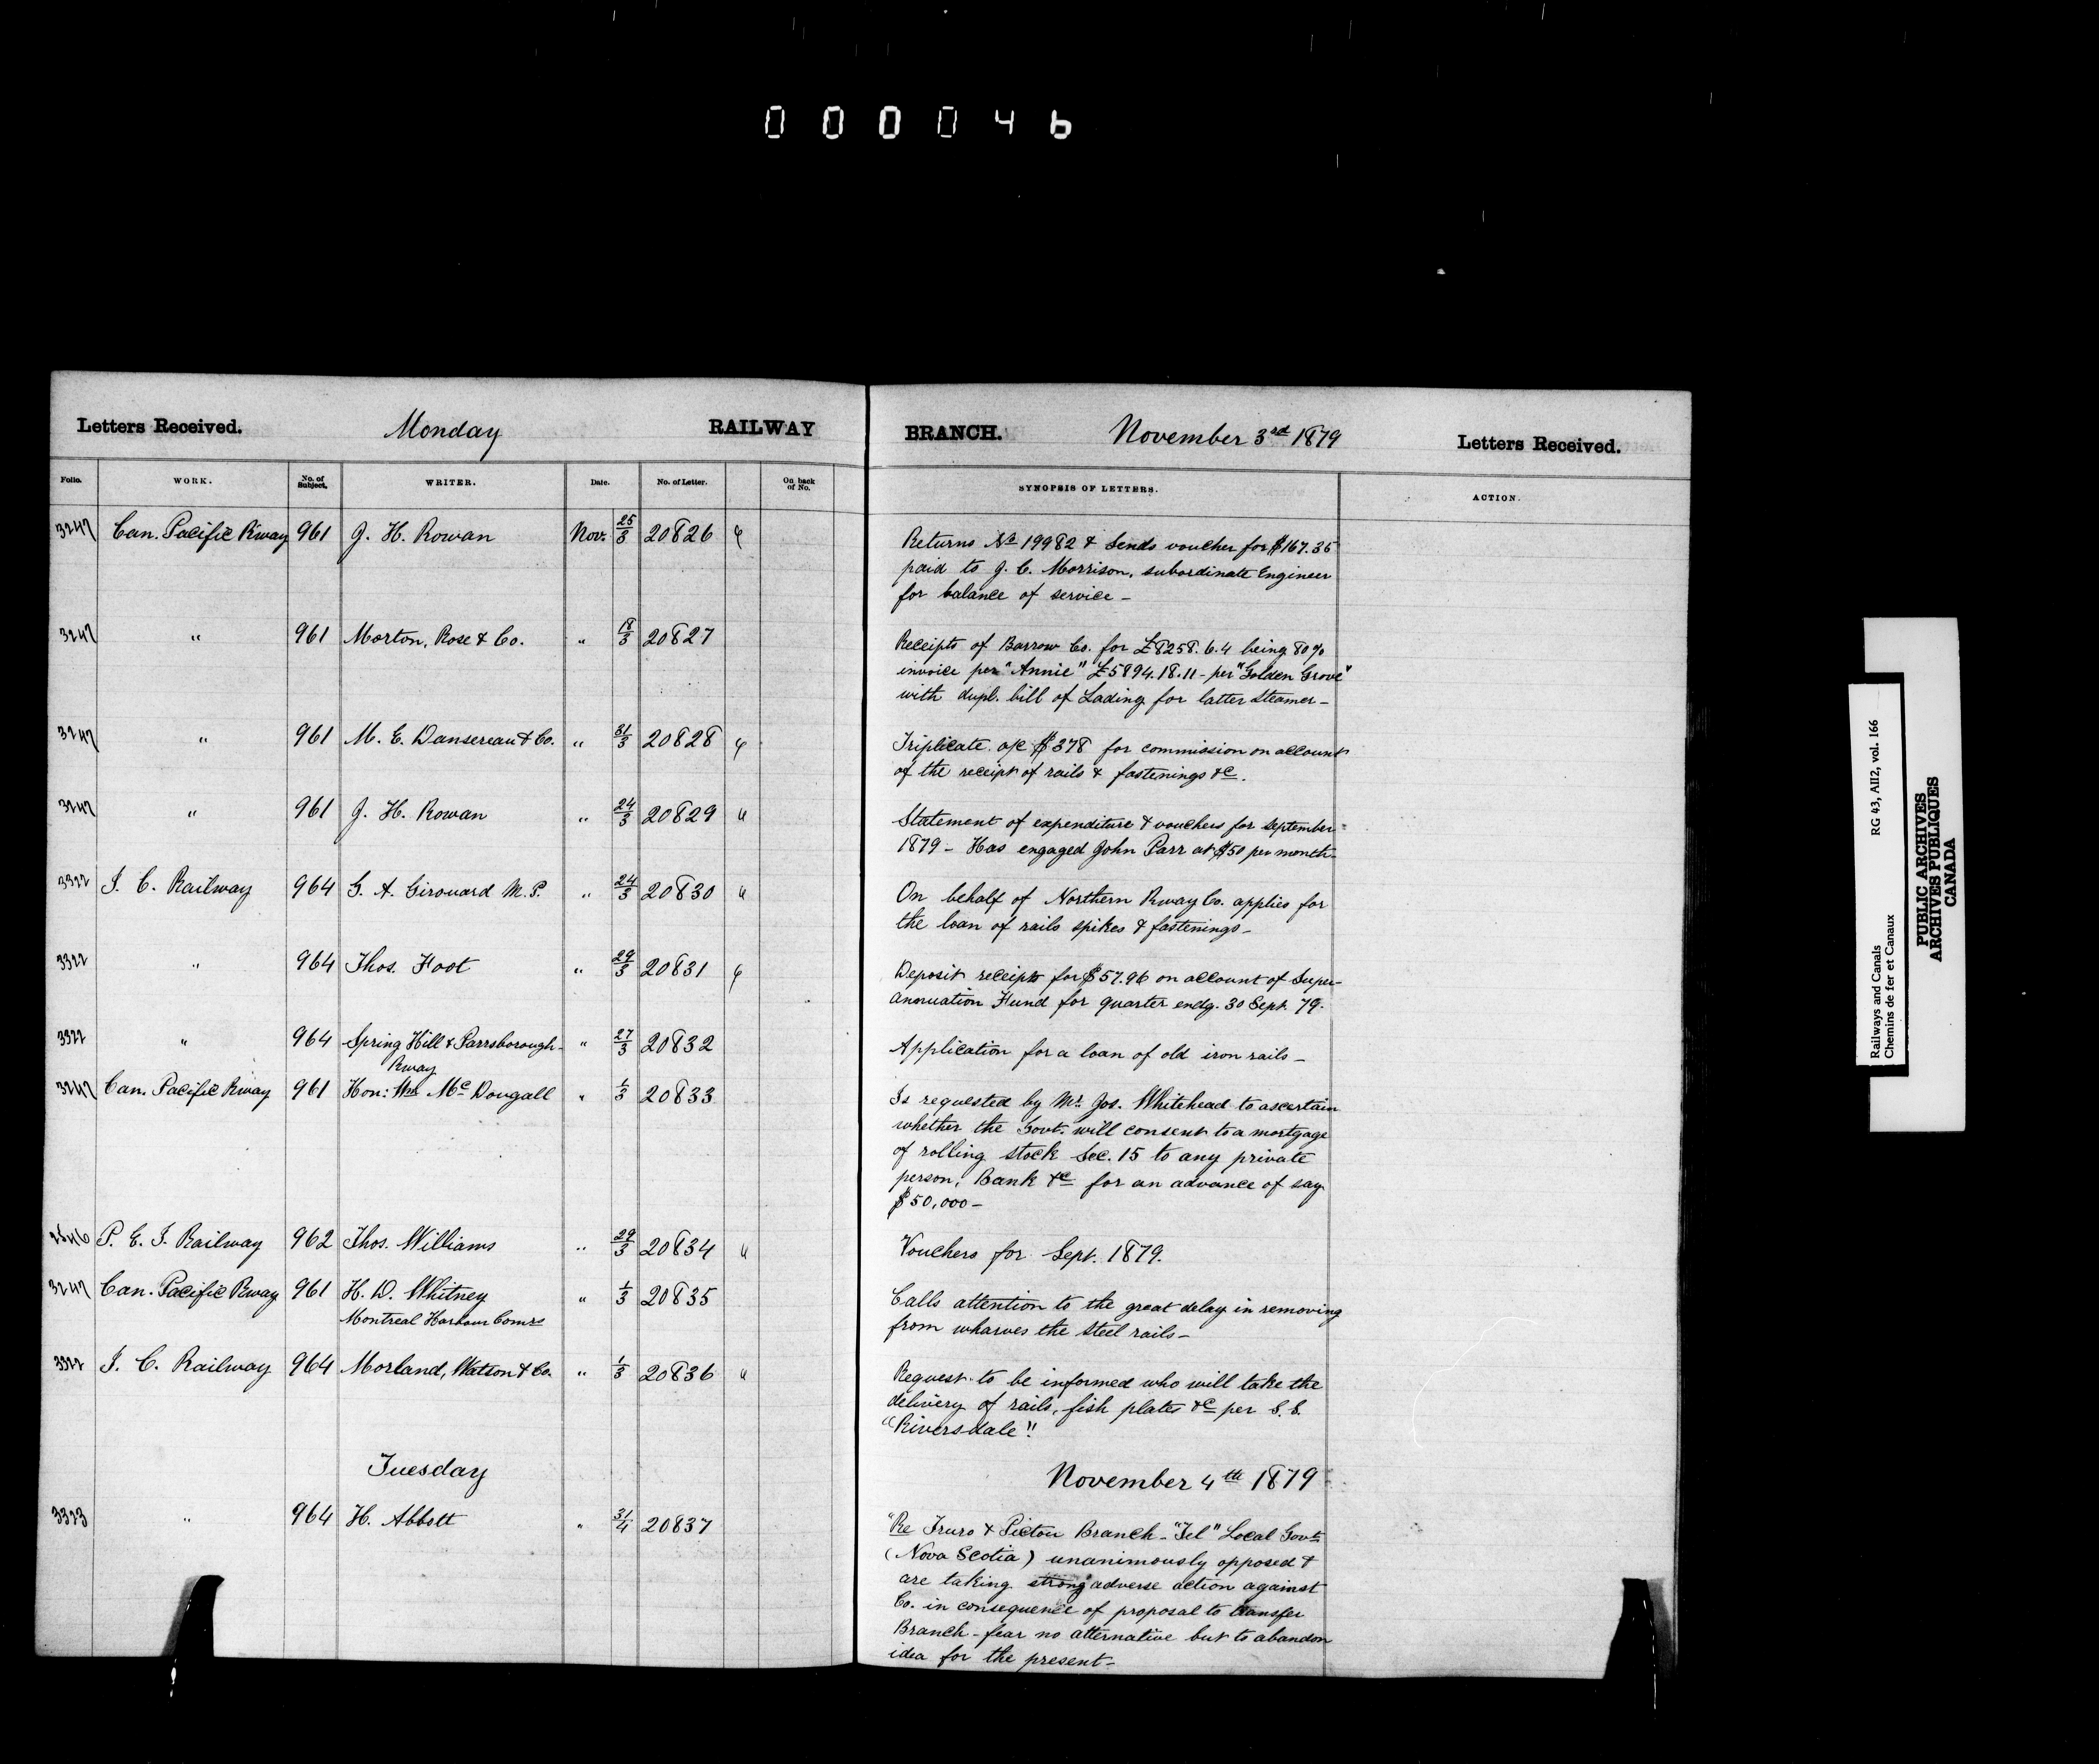 000046
Letters Received. Monday RAILWAY BRANCH. November 3rd 1879 Letters Received.
Folio. WORK. No. of Subject. WRITER. Date. No. of Letter. On back of No. SYNOPSIS OF LETTERS. ACTION.
3247 Can. Pacific Rway 961 J. H. Rowan Nov. 25/3 20826
Returns No 19982 & sends voucher for $167.35
paid to J. C. Morrison, subordinate Engineer
for balance of service –
3247 " 961 Morton, Rose & Co. " 18/3 20827
Receipts of Barrow Co. for £8258.6.4 being 80%
invoice per "Annie" £5894.18.11 – per "Golden Grove"
with dupl. bill of Lading for latter steamer –
3247 " 961 M. E. Dansereau & Co. " 31/3 20828
Triplicate a/c $378 for commission on account
of the receipt of rails & fastenings &c.
3247 " 961 J. H. Rowan " 24/3 20829 "
Statement of expenditure & vouchers for September
1879 – Has engaged John Parr at $50 per month –
3322 I. C. Railway 964 G. A. Girouard M.P. " 24/3 20830 "
On behalf of Northern Rway Co. applies for
the loan of rails spikes & fastenings –
3322 " 964 Thos. Foot " 29/3 20831
Deposit receipts for $57.96 on account of Super-
annuation Fund for quarter endg. 30 Sept. 79.
3322 " 964 Spring Hill & Parrsborough- " 27/3 20832
Rway
Application for a loan of old iron rails –
3247 Can. Pacific Rway 961 Hon: Wm McDougall " 1/3 20833
Is requested by Mr. Jos. Whitehead to ascertain
whether the Govt. will consent to a mortgage
of rolling stock Sec. 15 to any private
person, Bank &c for an advance of say
$50,000 –
P. E. I. Railway 962 Thos. Williams " 29/3 20834 "
Vouchers for Sept. 1879.
3247 Can. Pacific Rway 961 H. D. Whitney " 1/3 20835
Montreal Harbour Comrs
Calls attention to the great delay in removing
from wharves the steel rails –
3322 I. C. Railway 964 Morland, Watson & Co. " 1/3 20836 "
Request to be informed who will take the
delivery of rails, fish plates &c per S. S.
"Riversdale"
Tuesday November 4th 1879
3323 " 964 H. Abbott " 31/4 20837
"Re Truro & Pictou Branch – "Tel" Local Govt
(Nova Scotia) unanimously opposed &
are taking strong adverse action against
Co. in consequence of proposal to transfer
Branch – fear no alternative but to abandon
idea for the present –
Railways and Canals RG 43, AII2, vol. 166
Chemins de fer et Canaux
PUBLIC ARCHIVES
ARCHIVES PUBLIQUES
CANADA